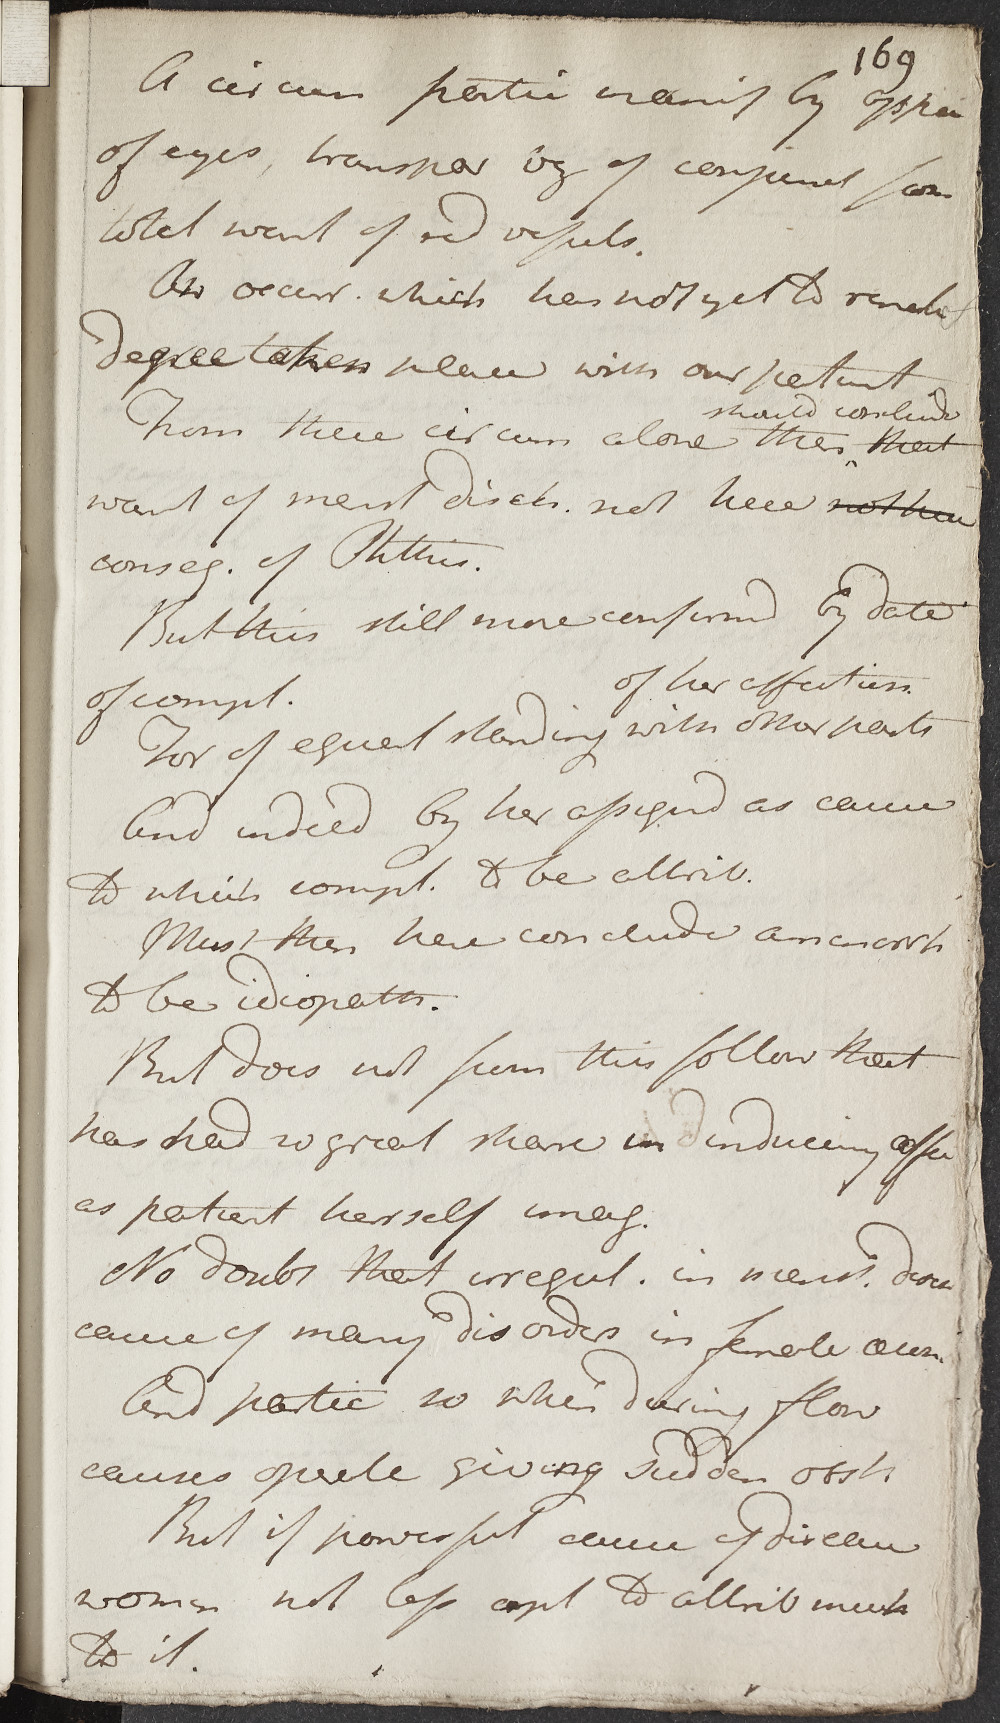 169
A circum partic manif by appea
of eyes, transpar of conjunct from
total want of red vessels.
An occurr. which has not yet to remark
degree taken place with our patient
should conclude
From these circum alone then ^ that
want of menst disch. not here not here
conseq. of Phthis.
But this still more confirmd by date
of compl.
of her affection
For of equal standing with other parts
And indeed by her assignd as cause
to which compl. to be attrib.
Must then here conclude amenorrh
to be idiopath.
But does not from this follow that
has had so great share in inducing affe
as patient herself imag.
No doubt that irregul. in menst. disch
cause of many disorders in female
And partic so when during flow
causes operate giving sudden obst
But if powerful cause of disease
women not less apt to attrib much
to it.